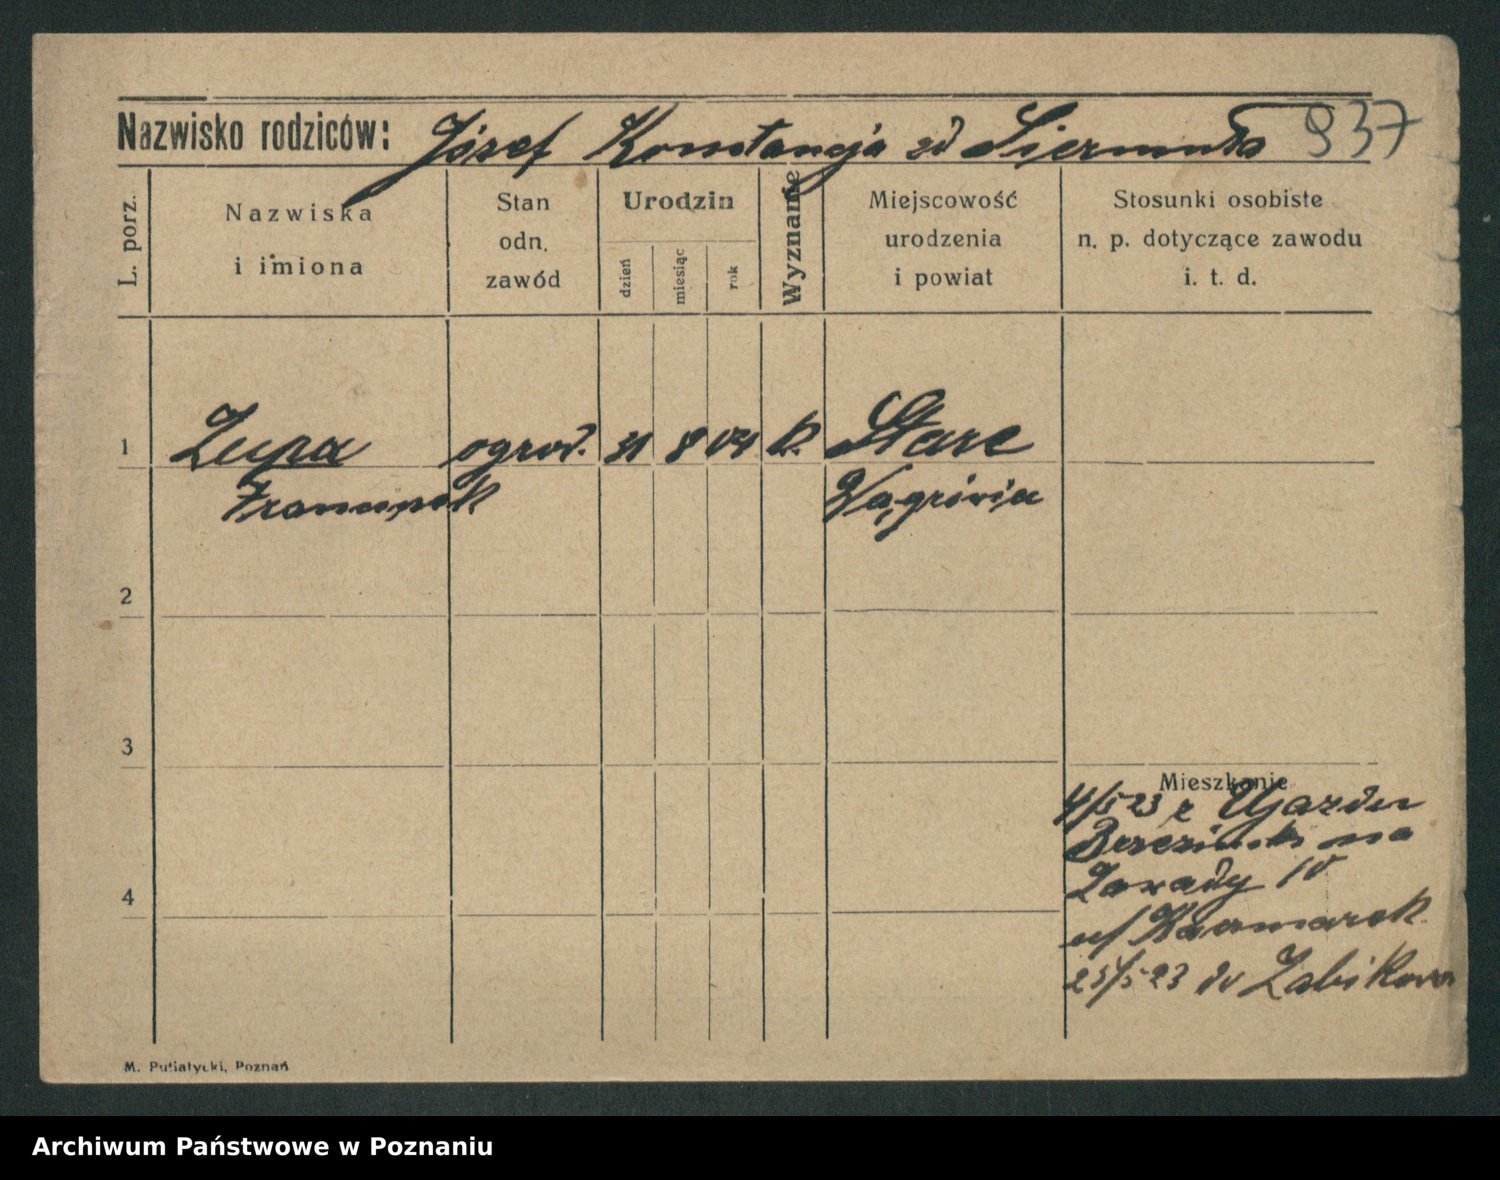 Nazwisko rodziców: Józef Konstancja zd 937
L. porz.
Nazwiska
i imiona
Stan
odn.
zawód
Urodzin
dzień
miesiąc
rok
Wyznanie
Miejscowość
urodzenia
i powiat
Stosunki osobiste
n. p. dotyczące zawodu
i. t. d.
1 Zupa ogrod. 31 8 04 k. Stare
2
3
Mieszkanie
4/5 23 z Ujazdu
na
4 Zawady 10
u/ Kaczmarek
25/5 23 do Żabikowa
M. Putiatycki, Poznań
Archiwum Państwowe w Poznaniu